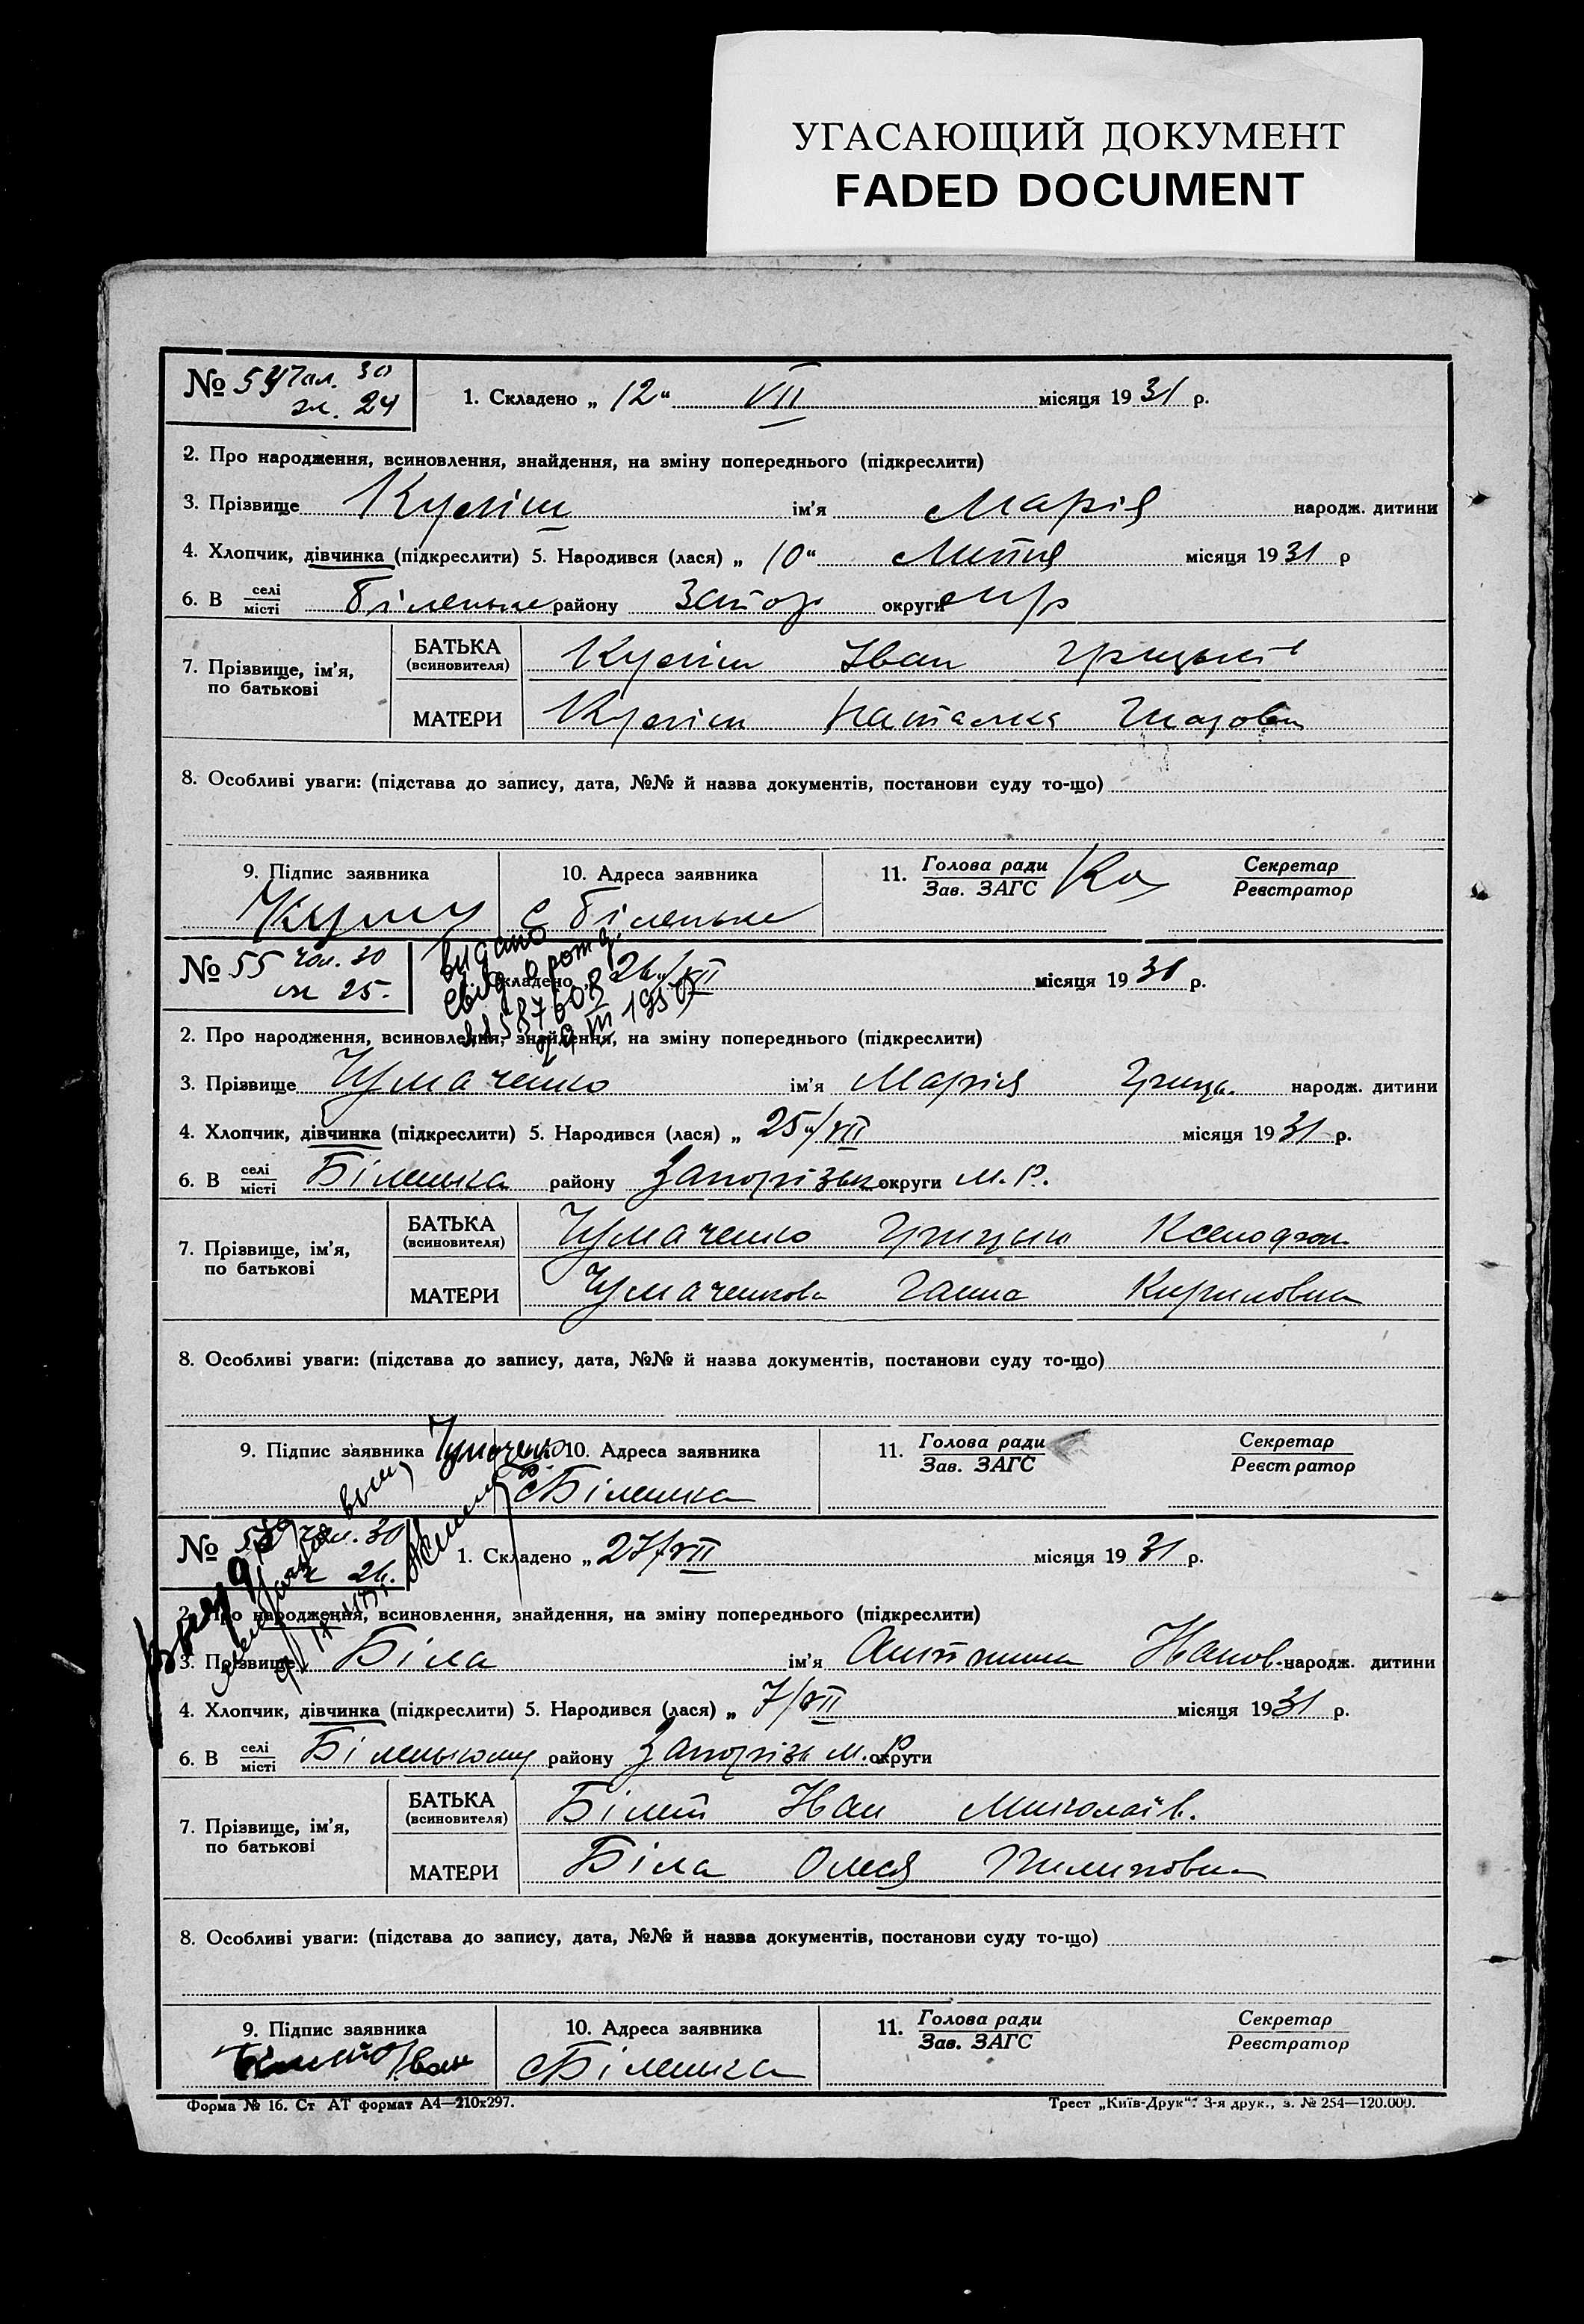 УГАСАЮЩИЙ ДОКУМЕНТ
FADED DOCUMENT
№ 54 чол. 30
жі. 24
1. Складено „ 12 “ VII місяця 1931 р.
2. Про народження, всиновлення, знайдення, на зміну попереднього (підкреслити)
3. Прізвище Куліш ім'я Марія народж. дитини
4. Хлопчик, дівчинка (підкреслити) 5. Народився (лася) „ 10 “ Липня місяця 1931 р
6. В селі/місті Біленьке району Запор округи М/р
7. Прізвище, ім'я, по батькові
БАТЬКА (всиновителя) Куліш Іван Грицько
МАТЕРИ Куліш Наталка
8. Особливі уваги: (підстава до запису, дата, №№ й назва документів, постанови суду то-що)
9. Підпис заявника
10. Адреса заявника с Біленьке
11. Голова ради/Зав. ЗАГС Секретар/Реєстратор
№ 55 чол. 30
жі 25.
видано свід. о рожд.
1. Складено „ 26 “/VII місяця 1931 р.
2. Про народження, всиновлення, знайдення, на зміну попереднього (підкреслити)
3. Прізвище Чумаченко ім'я Марія Грицьк. народж. дитини
4. Хлопчик, дівчинка (підкреслити) 5. Народився (лася) „ 25 “/VII місяця 1931 р.
6. В селі/місті Біленька району Запорізьк округи М. Р.
7. Прізвище, ім'я, по батькові
БАТЬКА (всиновителя) Чумаченко Грицько Ксенофон.
МАТЕРИ Чумаченкова Ганна Кириловна
8. Особливі уваги: (підстава до запису, дата, №№ й назва документів, постанови суду то-що)
9. Підпис заявника Чумаченко
10. Адреса заявника с Біленька
11. Голова ради/Зав. ЗАГС Секретар/Реєстратор
№ чол. 30
26.
1. Складено „ 27/VII місяця 1931 р.
2. Про народження, всиновлення, знайдення, на зміну попереднього (підкреслити)
3. Прізвище Біла ім'я Іванов. народж. дитини
4. Хлопчик, дівчинка (підкреслити) 5. Народився (лася) „ 7/VII місяця 1931 р.
6. В селі/місті Біленькому району Запорізь М. Р. округи
7. Прізвище, ім'я, по батькові
БАТЬКА (всиновителя) Білий Іван Миколаїв.
МАТЕРИ Біла Олеся Пилиповна
8. Особливі уваги: (підстава до запису, дата, №№ й назва документів, постанови суду то-що)
9. Підпис заявника Іван
10. Адреса заявника с Біленька
11. Голова ради/Зав. ЗАГС Секретар/Реєстратор
Форма № 16. Ст АТ формат А4—210х297.
Трест „Київ-Друк“. 3-я друк., з. № 254—120.000.